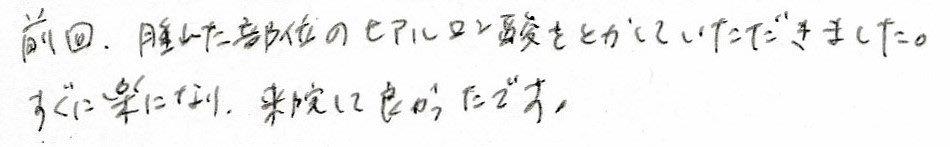 前回、腫れた部位のヒアルロン酸をとかしていただきました。
すぐに楽になり、来院して良かったです。